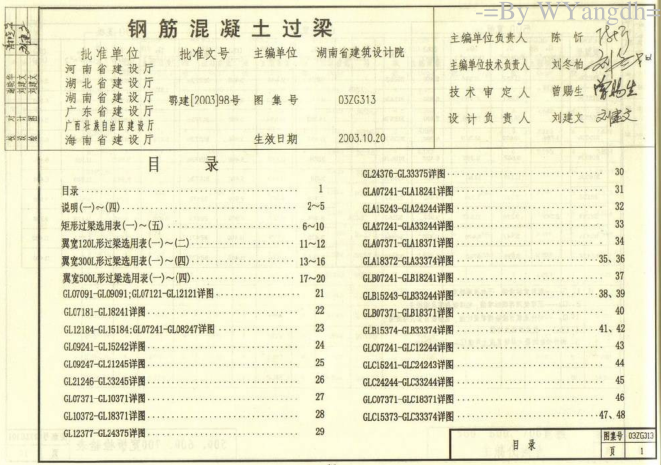 -=By WYangdh=
钢筋混凝土过梁
批准单位 批准文号 主编单位 湖南省建筑设计院
河南省建设厅
湖北省建设厅
湖南省建设厅 鄂建[2003]98号 图集号 03ZG313
广东省建设厅
广西壮族自治区建设厅
海南省建设厅 生效日期 2003.10.20
主编单位负责人 陈忻
主编单位技术负责人 刘冬柏
技术审定人 曾赐生
设计负责人 刘建文
目录
目录 1
说明(一)~(四) 2~5
矩形过梁选用表(一)~(五) 6~10
翼宽120L形过梁选用表(一)~(二) 11~12
翼宽300L形过梁选用表(一)~(四) 13~16
翼宽500L形过梁选用表(一)~(四) 17~20
GL07091-GL09091;GL07121-GL12121详图 21
GL07181-GL18241详图 22
GL12184-GL15184;GL07241-GL08247详图 23
GL09241-GL15242详图 24
GL09247-GL21245详图 25
GL21246-GL33245详图 26
GL07371-GL10371详图 27
GL10372-GL18371详图 28
GL12377-GL24375详图 29
GL24376-GL33375详图 30
GLA07241-GLA18241详图 31
GLA15243-GLA24244详图 32
GLA27241-GLA33244详图 33
GLA07371-GLA18371详图 34
GLA18372-GLA33374详图 35、36
GLB07241-GLB18241详图 37
GLB15243-GLB33244详图 38、39
GLB07371-GLB18371详图 40
GLB15374-GLB33374详图 41、42
GLC07241-GLC12244详图 43
GLC15241-GLC24243详图 44
GLC24244-GLC33244详图 45
GLC07371-GLC18371详图 46
GLC15373-GLC33374详图 47、48
目录 图集号 03ZG313
页 1